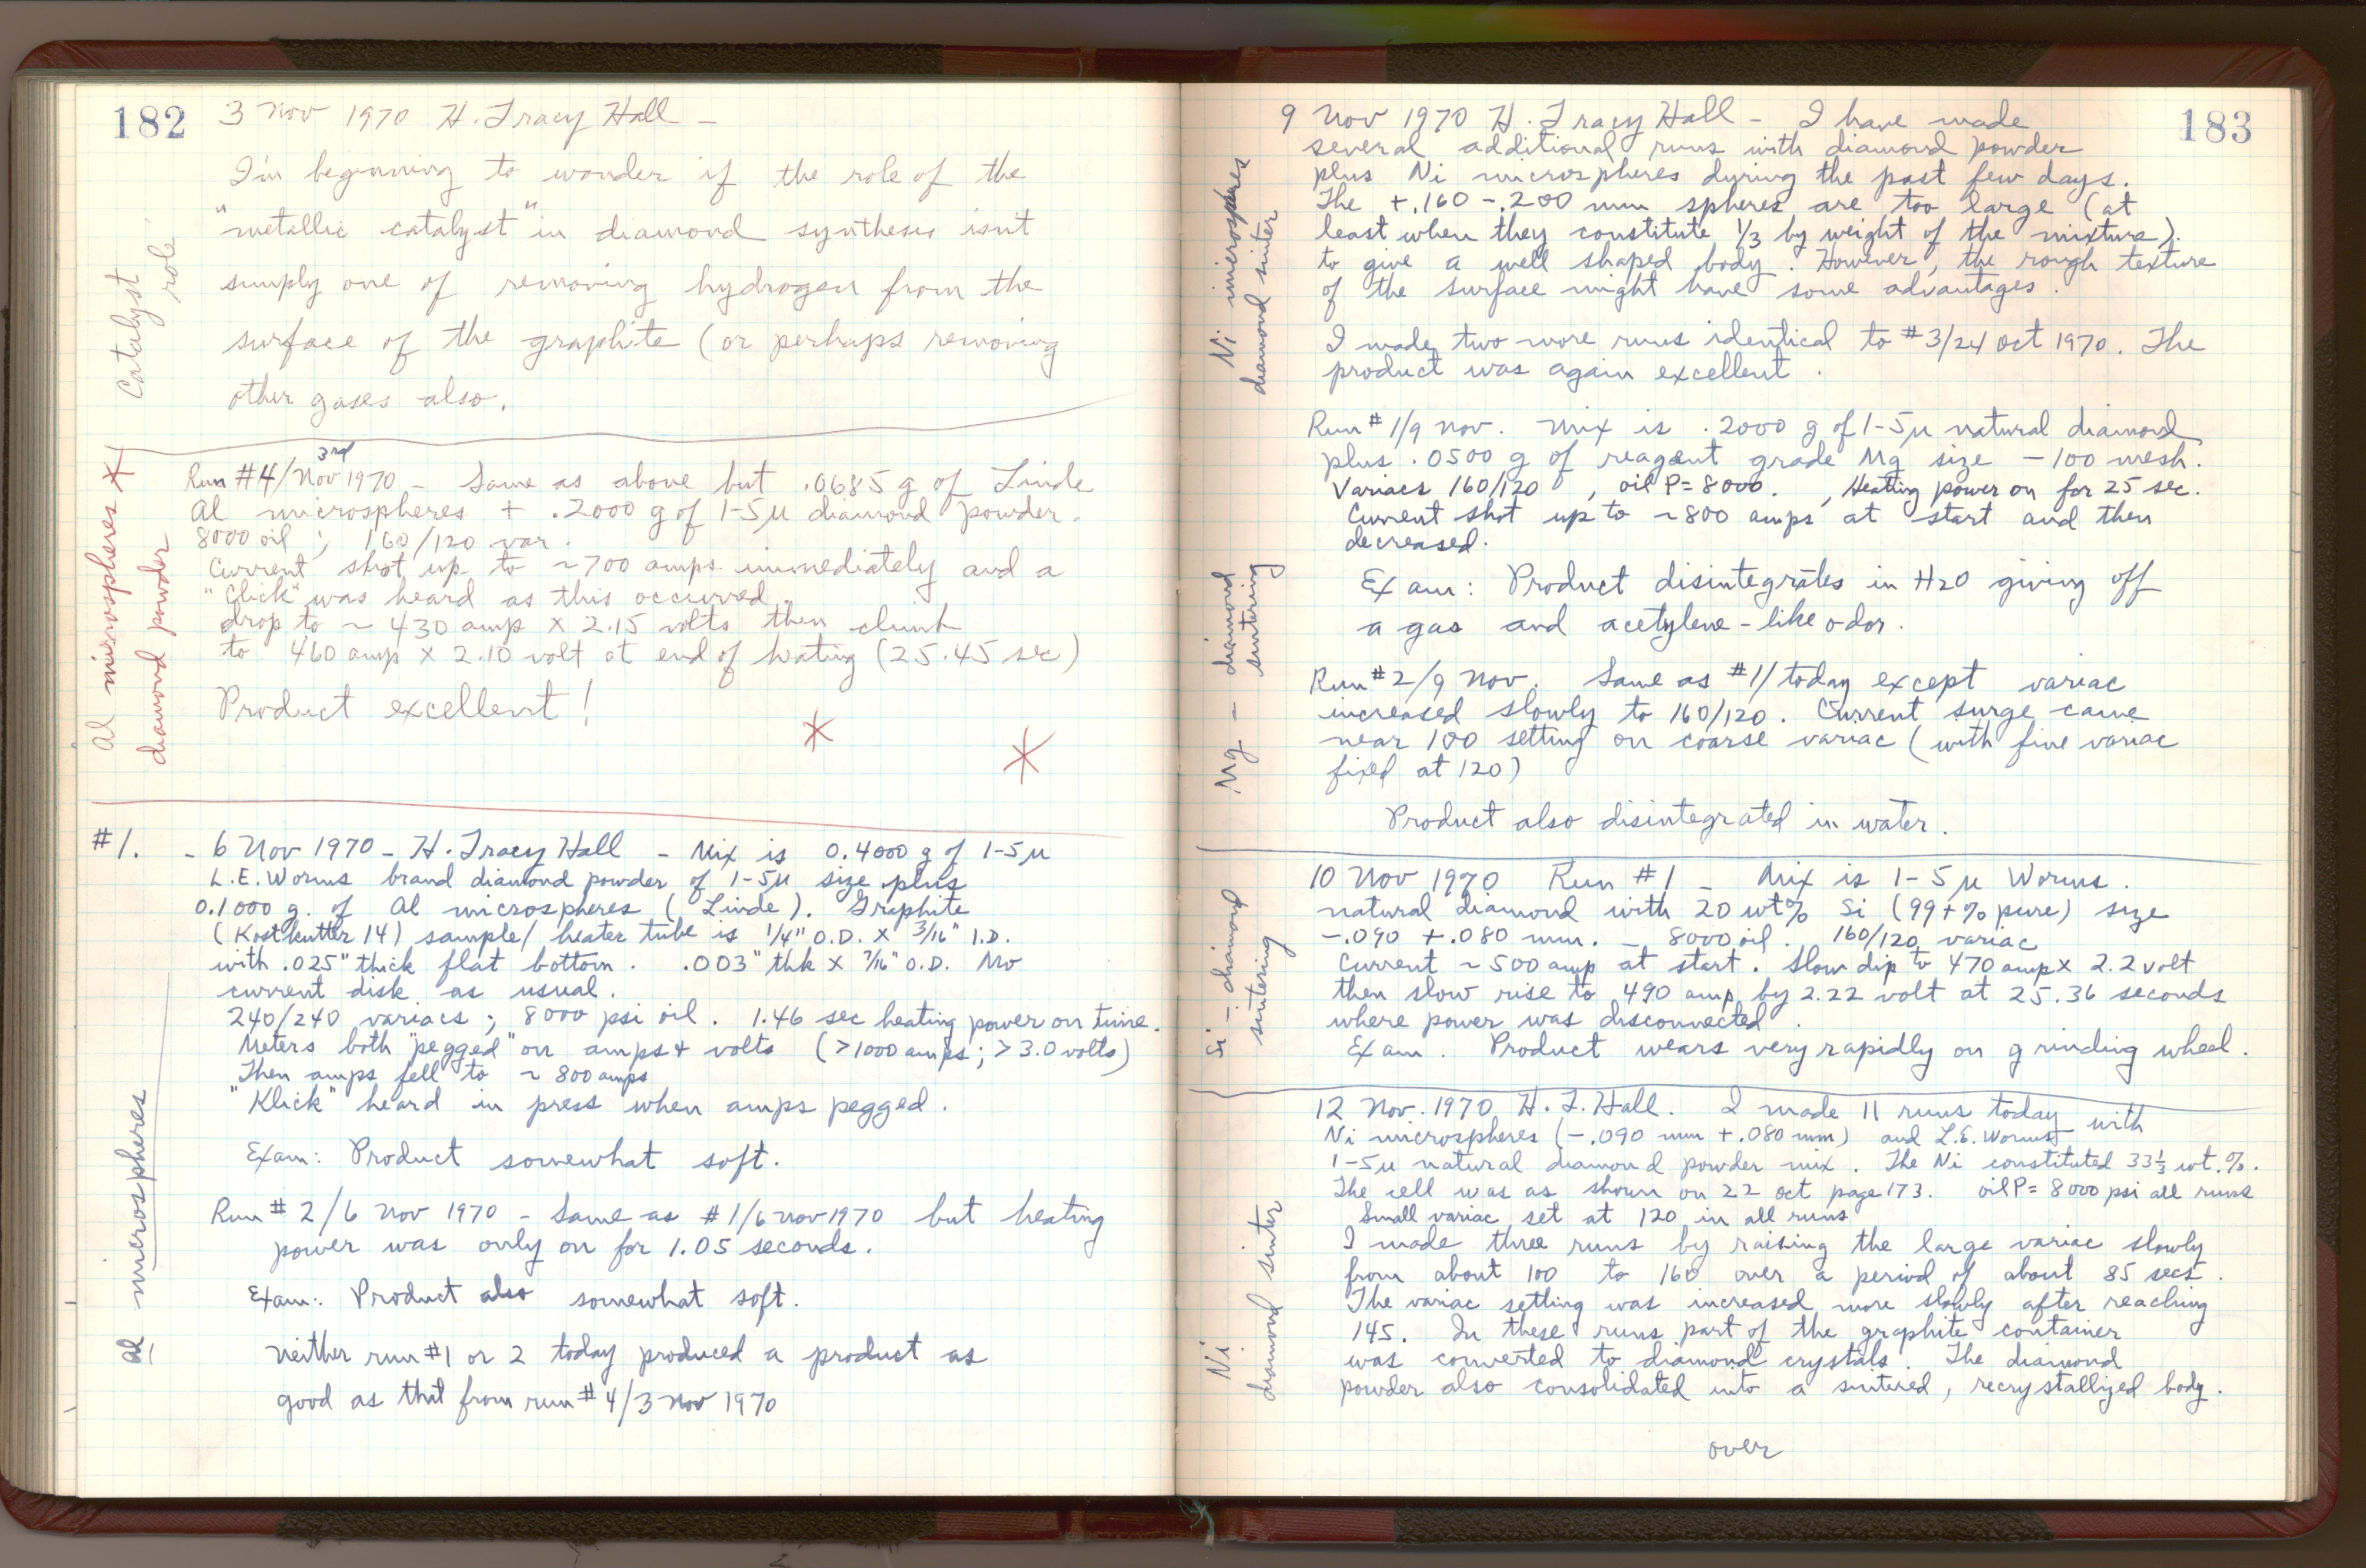 182
3 Nov 1970 H. Tracy Hall –
I'm beginning to wonder if the role of the
"metallic catalyst" in diamond synthesis isn't
simply one of removing hydrogen from the
surface of the graphite (or perhaps removing
other gases also.
Catalyst
role
Run #4/Nov 3rd 1970 – Same as above but .0685 g of Linde
Al microspheres + .2000 g of 1-5µ diamond powder.
8000 oil ; 160/120 var.
Current shot up to ~700 amps immediately and a
"Click" was heard as this occurred.
drop to ~ 430 amp x 2.15 volts then climb
to 460 amp x 2.10 volt at end of heating (25.45 sec)
Product excellent!
Al microspheres *
diamond powder
* *
#1. - 6 Nov 1970 – H. Tracy Hall – Mix is 0.4000 g of 1-5µ
L.E. Worms brand diamond powder of 1-5µ size plus
0.1000 g. of Al microspheres (Linde). Graphite
(Kostkutter 14) sample/heater tube is 1/4" O.D. x 3/16" I.D.
with .025" thick flat bottom. .003" thk x 7/16" O.D. Mo
current disk as usual.
240/240 variacs ; 8000 psi oil. 1.46 sec heating power on time.
Meters both "pegged" on amps & volts (>1000 amps; >3.0 volts)
Then amps fell to ~ 800 amps
"Klick" heard in press when amps pegged.
Exam: Product somewhat soft.
Run # 2/6 Nov 1970 – Same as #1/6 Nov 1970 but heating
power was only on for 1.05 seconds.
Exam: Product also somewhat soft.
Neither run #1 or 2 today produced a product as
good as that from run #4/3 Nov 1970
Al microspheres
183
9 Nov 1970 H. Tracy Hall – I have made
several additional runs with diamond powder
plus Ni microspheres during the past few days.
The +.160 -.200 mm spheres are too large (at
least when they constitute 1/3 by weight of the mixture).
to give a well shaped body. However, the rough texture
of the surface might have some advantages.
I made two more runs identical to #3/24 Oct 1970. The
product was again excellent.
Ni microspheres
diamond sinter
Run # 1/9 Nov. Mix is .2000 g of 1-5µ natural diamond
plus .0500 g of reagent grade Mg size -100 mesh.
Variacs 160/120 , oil P = 8000. , Heating power on for 25 sec.
Current shot up to ~800 amps at start and then
decreased.
Exam: Product disintegrates in H2O giving off
a gas and acetylene-like odor.
Run # 2/9 Nov. Same as #1/today except variac
increased slowly to 160/120. Current surge came
near 100 setting on coarse variac (with fine variac
fixed at 120)
Product also disintegrated in water.
Mg – diamond
sintering
10 Nov 1970 Run #1 – Mix is 1-5µ Worms.
natural diamond with 20 wt% Si (99+% pure) size
-.090 +.080 mm. – 8000 oil. 160/120 variac
Current ~500 amp at start. Slow dip to 470 amp x 2.2 volt
then slow rise to 490 amp by 2.22 volt at 25.36 seconds
where power was disconnected.
Exam. Product wears very rapidly on grinding wheel.
Si – diamond
sintering
12 Nov. 1970 H. T. Hall. I made 11 runs today with
Ni microspheres (-.090 mm +.080 mm) and L.E. Worms
1-5µ natural diamond powder mix. The Ni constituted 33 1/3 wt. %.
The cell was as shown on 22 Oct page 173. oil P = 8000 psi all runs
Small variac set at 120 in all runs
I made three runs by raising the large variac slowly
from about 100 to 160 over a period of about 85 secs.
The variac setting was increased more slowly after reaching
145. In these runs part of the graphite container
was converted to diamond crystals. The diamond
powder also consolidated into a sintered, recrystallized body.
Ni
diamond sinter
over